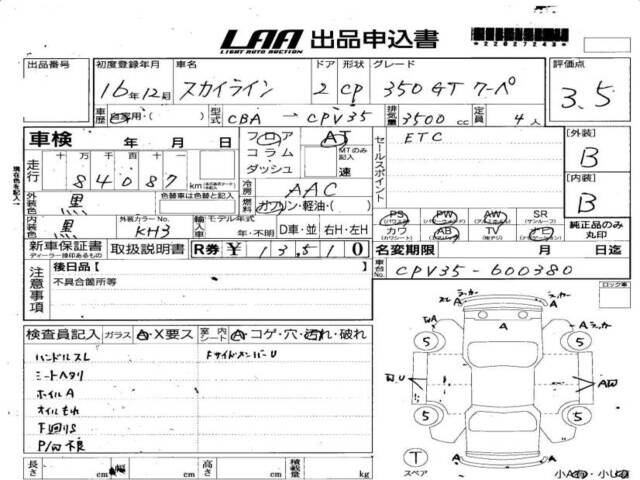 LAA 出品申込書
LIGHT AUTO AUCTION
*22027243*
出品番号 初度登録年月 車名 ドア 形状 グレード 評価点
16年12月 スカイライン 2 CP 350GT クーペ 3.5
車歴 自家用・( ) 型式 CBA → CPV35 排気量 3500cc 定員 4人
車検 年 月 日 フロア コラム ダッシュ AT MTのみ記入 速
セールスポイント ETC
[外装] B
走行 十万千百十一 84087 km
現在色を記入→
外装色 黒 色替車は色替と記入
冷房 AAC
燃料 ガソリン・軽油・( )
[内装] B
PS (パワステ) PW (パワーウィンド) AW (アルミホイル) SR (サンルーフ)
カワ (カワシート) AB (エアバッグ) TV (テレビ) ナビ
純正品のみ丸印
内装色 黒 外装カラーNo. KH3 輸入車 モデル年式 年・不明 D車・並 右H・左H
新車保証書 ディーラー捺印あるもの 取扱説明書 R券 ¥ 13,510
名変期限 月 日迄
注意事項 後日品[ ]
不具合箇所等
車台No. CPV35-600380
ロック車
検査員記入 ガラス A・X要ス 室内シート A コゲ・穴・汚れ・破れ
ハンドルスレ FサイドメンバーU
シートヘタリ
ホイルA
オイルもれ
下回りS
P/W不良
A A
5 5
5 5
AW
A
T
スペア
長さ cm 幅 cm 高さ cm 積載量 kg
小A・小U